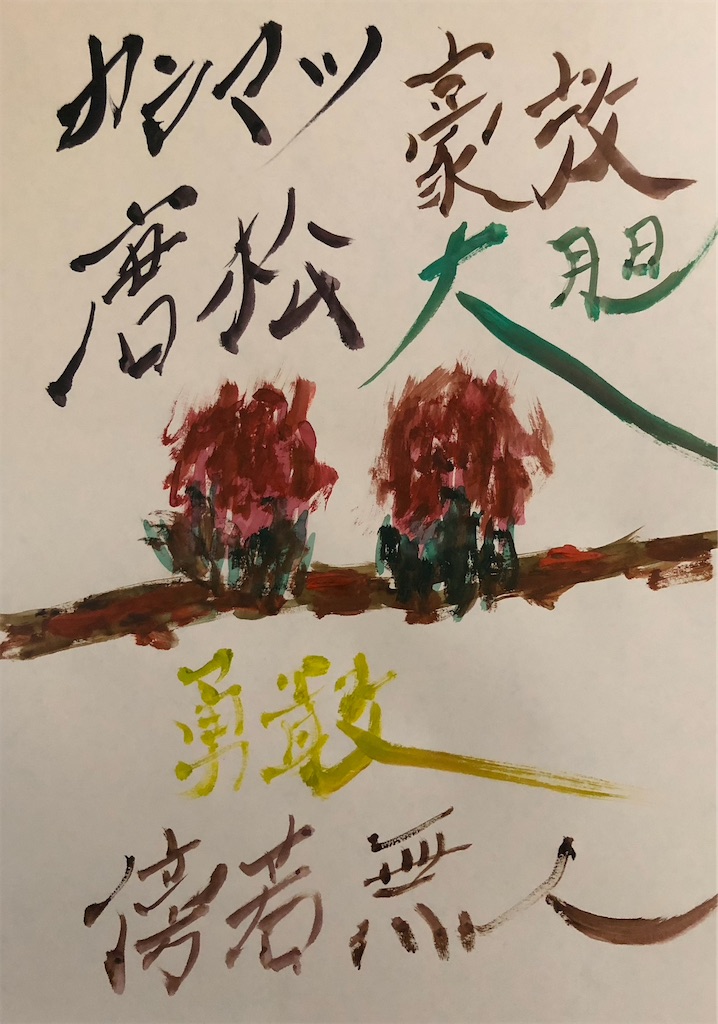 カラマツ
唐松
豪放
大胆
勇敢
傍若無人